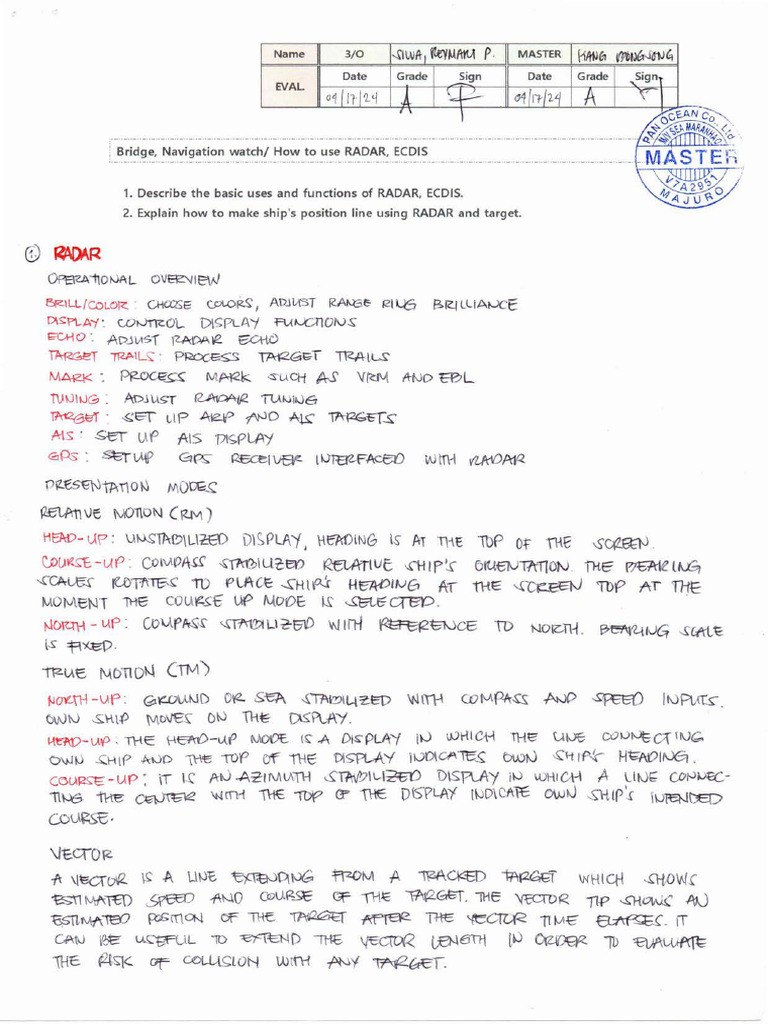 Name 3/O SILVA, REYMARK P. MASTER KANG
EVAL. Date Grade Sign Date Grade Sign
09/17/24 A 09/17/24 A
PAN OCEAN Co., Ltd.
M/V SEA MARANHAO
MASTER
V7A2951
MAJURO
Bridge, Navigation watch/ How to use RADAR, ECDIS
1. Describe the basic uses and functions of RADAR, ECDIS.
2. Explain how to make ship's position line using RADAR and target.
1. RADAR
OPERATIONAL OVERVIEW
BRILL/COLOR: CHOOSE COLORS, ADJUST RANGE RING BRILLIANCE
DISPLAY: CONTROL DISPLAY FUNCTIONS
ECHO: ADJUST RADAR ECHO
TARGET TRAILS: PROCESS TARGET TRAILS
MARK: PROCESS MARK SUCH AS VRM AND EBL
TUNING: ADJUST RADAR TUNING
TARGET: SET UP ARP AND AIS TARGETS
AIS: SET UP AIS DISPLAY
GPS: SETUP GPS RECEIVER INTERFACED WITH RADAR
PRESENTATION MODES
RELATIVE MOTION (RM)
HEAD-UP: UNSTABILIZED DISPLAY, HEADING IS AT THE TOP OF THE SCREEN.
COURSE-UP: COMPASS STABILIZED RELATIVE SHIP'S ORIENTATION. THE BEARING
SCALES ROTATES TO PLACE SHIP'S HEADING AT THE SCREEN TOP AT THE
MOMENT THE COURSE UP MODE IS SELECTED.
NORTH-UP: COMPASS STABILIZED WITH REFERENCE TO NORTH. BEARING SCALE
IS FIXED.
TRUE MOTION (TM)
NORTH-UP: GROUND OR SEA STABILIZED WITH COMPASS AND SPEED INPUTS.
OWN SHIP MOVES ON THE DISPLAY.
HEAD-UP: THE HEAD-UP MODE IS A DISPLAY IN WHICH THE LINE CONNECTING
OWN SHIP AND THE TOP OF THE DISPLAY INDICATES OWN SHIP'S HEADING.
COURSE-UP: IT IS AN AZIMUTH STABILIZED DISPLAY IN WHICH A LINE CONNEC-
TING THE CENTER WITH THE TOP OF THE DISPLAY INDICATE OWN SHIP'S INTENDED
COURSE.
VECTOR
A VECTOR IS A LINE EXTENDING FROM A TRACKED TARGET WHICH SHOWS
ESTIMATED SPEED AND COURSE OF THE TARGET. THE VECTOR TIP SHOWS AN
ESTIMATED POSITION OF THE TARGET AFTER THE VECTOR TIME ELAPSES. IT
CAN BE USEFUL TO EXTEND THE VECTOR LENGTH IN ORDER TO EVALUATE
THE RISK OF COLLISION WITH ANY TARGET.